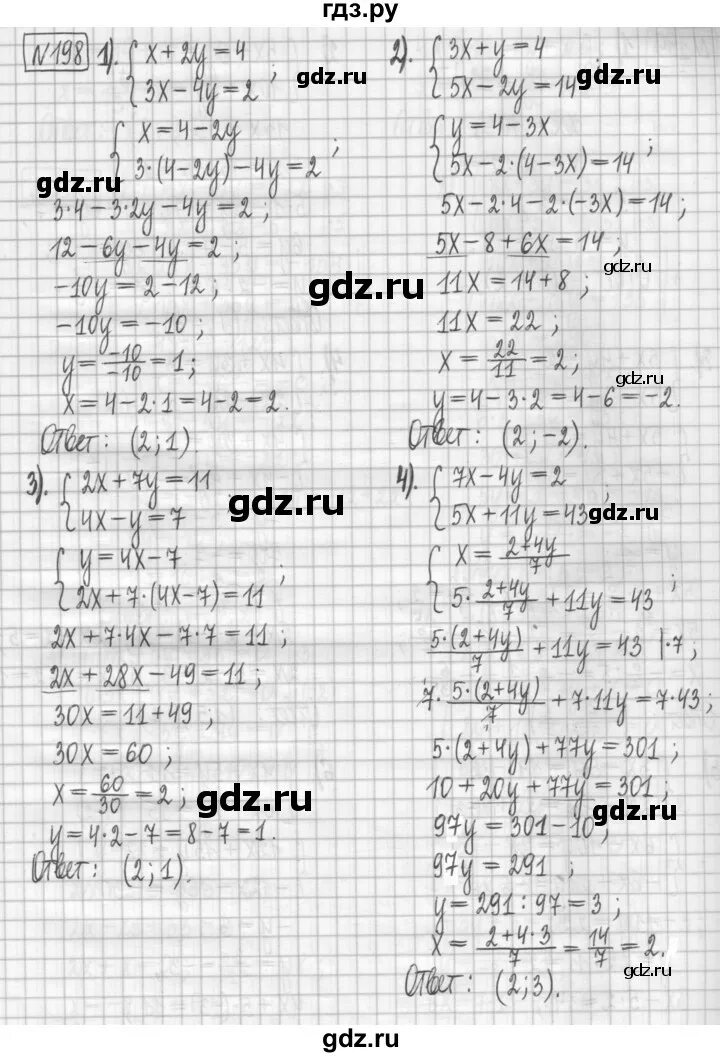 гдз.ру
№198 1). { x + 2y = 4
3x − 4y = 2 ;
{ x = 4 − 2y
3·(4 − 2y) − 4y = 2 ;
gdz.ru
3·4 − 3·2y − 4y = 2 ;
12 − 6y − 4y = 2 ;
−10y = 2 − 12 ;
−10y = −10 ;
y = −10/−10 = 1 ;
x = 4 − 2·1 = 4 − 2 = 2.
Ответ: (2; 1).
2). { 3x + y = 4
5x − 2y = 14 ;
gdz.ru
{ y = 4 − 3x
5x − 2·(4 − 3x) = 14 ;
5x − 2·4 − 2·(−3x) = 14 ;
5x − 8 + 6x = 14 ;
gdz.ru
11x = 14 + 8 ;
gdz.ru
11x = 22 ;
x = 22/11 = 2 ;
gdz.ru
y = 4 − 3·2 = 4 − 6 = −2.
Ответ: (2; −2).
gdz.ru
3). { 2x + 7y = 11
4x − y = 7
gdz.ru
{ y = 4x − 7
2x + 7·(4x − 7) = 11 ;
2x + 7·4x − 7·7 = 11 ;
2x + 28x − 49 = 11 ;
30x = 11 + 49 ;
30x = 60 ;
x = 60/30 = 2 ;
gdz.ru
y = 4·2 − 7 = 8 − 7 = 1.
Ответ: (2; 1).
4). { 7x − 4y = 2
5x + 11y = 43 ;
gdz.ru
{ x = (2+4y)/7
5·(2+4y)/7 + 11y = 43 ;
5·(2+4y)/7 + 11y = 43 |·7 ;
7·5·(2+4y)/7 + 7·11y = 7·43 ;
5·(2 + 4y) + 77y = 301 ;
10 + 20y + 77y = 301 ;
gdz.ru
97y = 301 − 10 ;
97y = 291 ;
y = 291 : 97 = 3 ;
x = (2+4·3)/7 = 14/7 = 2.
gdz.ru
Ответ: (2; 3).
gdz.ru